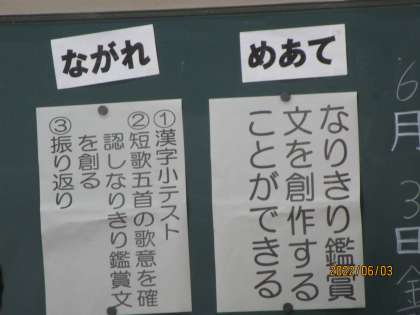 6月3日金
めあて
なりきり鑑賞
文を創作する
ことができる
ながれ
①漢字小テスト
②短歌五首の歌意を確
認しなりきり鑑賞文
を創る
③振り返り
2022/06/03